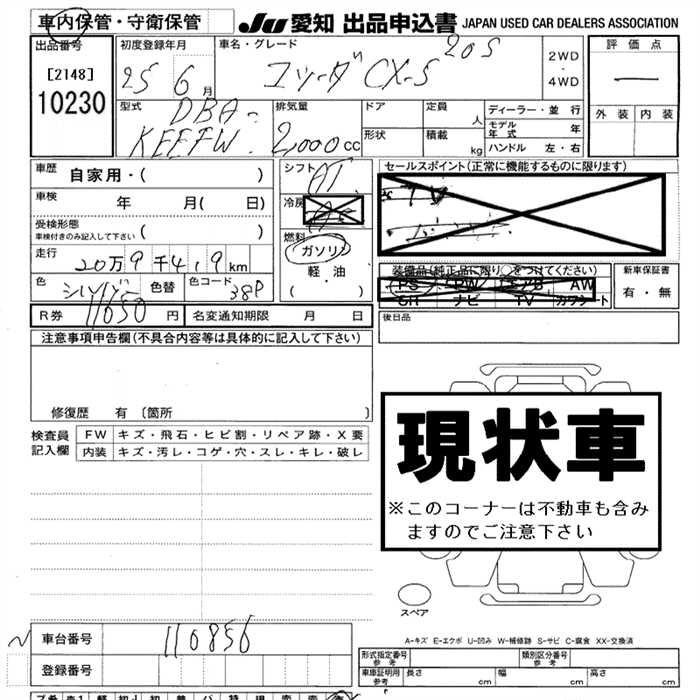 車内保管・守衛保管 JU 愛知 出品申込書 JAPAN USED CAR DEALERS ASSOCIATION
出品番号 初度登録年月 車名・グレード 評価点
[2148] 25 6月 マツダCX-5 20S 2WD・4WD —
10230
型式 DBA- 排気量 ドア 定員 人 ディーラー・並行 外装 内装
KEEFW 2,000cc 形状 積載 kg モデル年式 年
ハンドル 左・右
車歴 自家用・( ) シフト AT セールスポイント(正常に機能するものに限ります)
車検 年 月( 日) 冷房 TV
受検形態
車検付きのみ記入して下さい ( ) 燃料 ガソリン
走行 20万9千4,9km 軽油 装備品(純正品に限り○をつけてください) 新車保証書
色 シルバー 色替 色コード 38P ・( ) PS PW エアB AW 有・無
SR ナビ TV カワシート
R券 11050円 名変通知期限 月 日 後日品
注意事項申告欄(不具合内容等は具体的に記入して下さい)
修復歴 有 〔箇所 〕
検査員 FW キズ・飛石・ヒビ割・リペア跡・X要
記入欄 内装 キズ・汚レ・コゲ・穴・スレ・キレ・破レ
現状車
※このコーナーは不動車も含み
ますのでご注意下さい
スペア
A-キズ E-エクボ U-凹み W-補修跡 S-サビ C-腐食 XX-交換済
車台番号 110856
登録番号
形式指定番号 参考 類別区分番号 参考
車庫証明用 参考 長さ cm 幅 cm 高さ cm